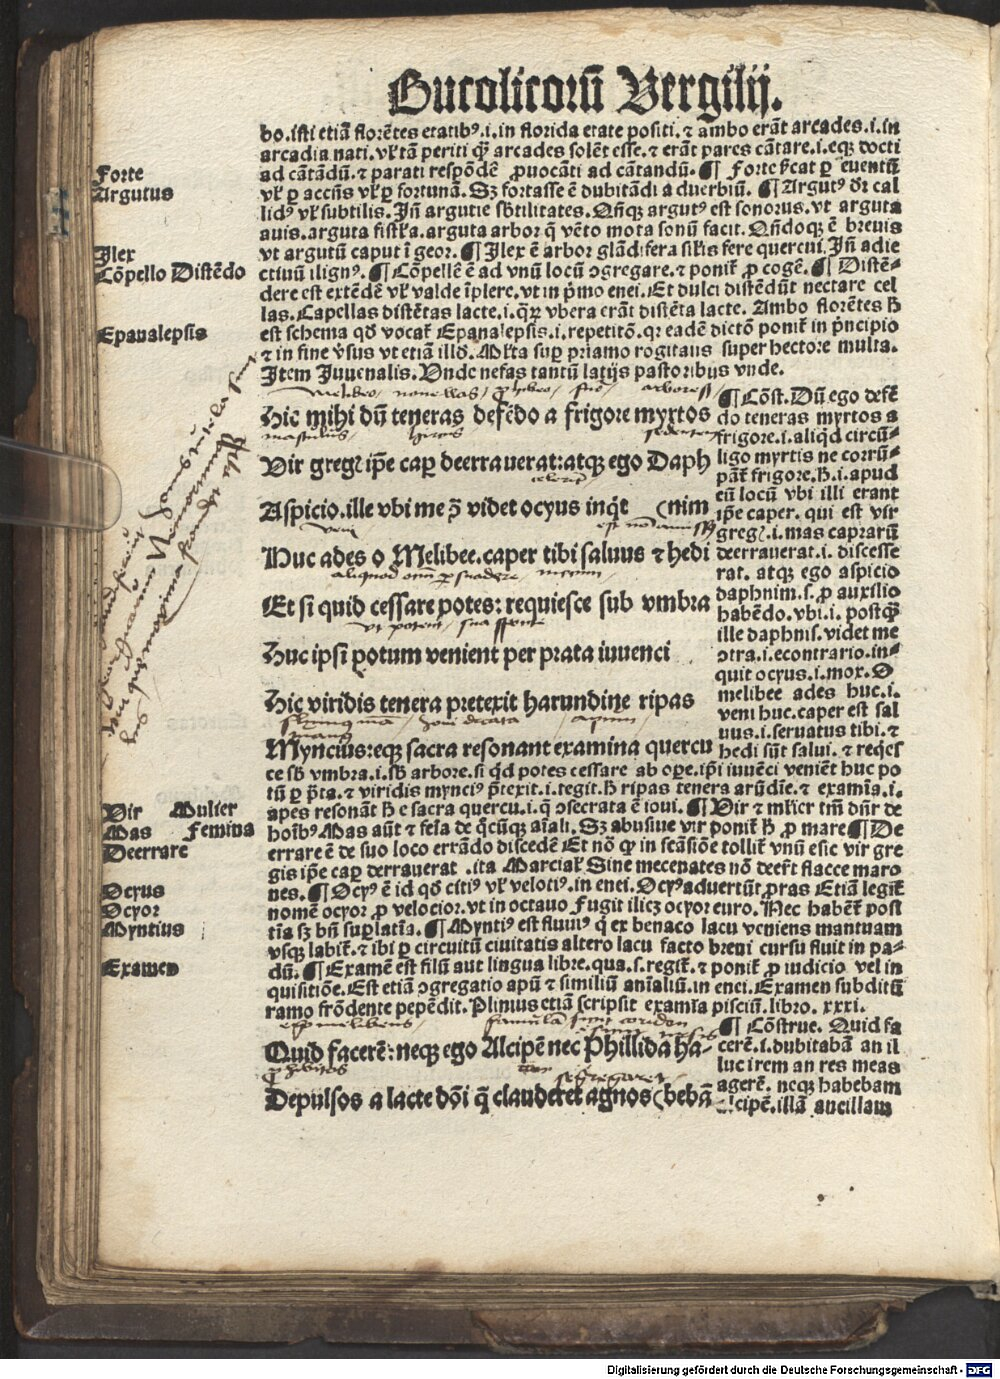 Bucolicorū Vergilij.
bo. isti etiā florētes etatibꝰ .i. in florida etate positi. ⁊ ambo erāt arcades .i. in
arcadia nati. vl' tā periti qȝ arcades solēt esse. ⁊ erāt pares cātare .i. eqȝ docti
ad cātādū. ⁊ parati respōdē ꝓuocāti ad cātandū. ¶ Forte ꝑ euentū
vl' ꝑ accn̄s vl' ꝑ fortunā. Sȝ fortasse ē dubitādi aduerbiū. ¶ Argutꝰ dr̄ cal
lidꝰ vl' subtilis. Jn̄ argutie sb̄tilitates. Qn̄qȝ argutꝰ est sonorus. vt arguta
auis. arguta fistl'a. arguta arbor q̄ vēto mota sonū facit. Qn̄doqȝ ē breuis
vt argutū caput ī geor. ¶ Jlex ē arbor glādifera sil'is fere quercui. Jn̄ adie
ctiuū ilignꝰ. ¶ Cōpellē ē ad vnū locū ↄgregare. ⁊ ponit̄ ꝓ cogē. ¶ Distē⸗
dere est extēdē vl' valde īplere. vt in p̄mo enei. Et dulci distēdūt nectare cel
las. Capellas distētas lacte .i. qꝝ vbera erāt distēta lacte. Ambo florētes h̄
est schema qd̄ vocat̄ Epanalepsis .i. repetitō. qꝛ eadē dictō ponit̄ in p̄ncipio
⁊ in fine v̄sus vt etiā illd̄. Ml'ta suꝑ priamo rogitans super hectore multa.
Jtem Juuenalis. Vnde nefas tantū latijs pastoribus vnde.
Forte
Argutus
Jlex
Cōpello Distēdo
Epanalepsis
Hic mihi dū teneras defēdo a frigore myrtos
Vir gregꝭ ip̄e caꝑ deerrauerat: atqȝ ego Daph
Aspicio. ille vbi me ↄ̄ videt ocyus inq̇t (nim
Huc ades o Melibee. caper tibi saluus ⁊ hedi
Et si quid cessare potes: requiesce sub vmbra
Huc ipsi potum venient per prata iuuenci
Hic viridis tenera pretexit harundine ripas
Myncius: eqȝ sacra resonant examina quercu
¶ Cōst. Dū ego defē
do teneras myrtos a
frigore .i. aliqd̄ circū⸗
ligo myrtis ne corrū⸗
pāt̄ frigore. h̄ .i. apud
eū locū vbi illi erant
ip̄e caper. qui est vir
gregꝭ .i. mas caprarū
deerrauerat .i. discesse
rat. atqȝ ego aspicio
daphnim .s. ꝓ auxilio
habēdo. vbi .i. postqȝ
ille daphnis. videt me
ↄtra .i. econtrario. in⸗
quit ocyus .i. mox. O
melibee ades huc .i.
veni huc. caper est sal
uus .i. seruatus tibi. ⁊
hedi sūt salui. ⁊ reqes
ce sb̄ vmbra .i. sb̄ arbore. si qd̄ potes cessare ab oꝑe. ip̄i iuuēci veniēt huc po
tū ꝑ p̄ta. ⁊ viridis mynciꝰ p̄texit .i. tegit. h̄ ripas tenera arūdīe. ⁊ examīa .i.
apes resonāt h̄ e sacra quercu .i. q̄ ↄsecrata ē ioui. ¶ Vir ⁊ ml'ier tm̄ dn̄r de
hoībꝰ Mas aūt ⁊ fel'a de q̇cūqȝ aīali. Sȝ abusiue vir ponit̄ h̄ ꝓ mare ¶ De
errare ē de suo loco errādo discedē Et nō in scāsiōe tollit̄ vnū e sic vir gre
gis ip̄e caꝑ derrauerat. ita Marcial' Sine mecenates nō deerūt flacce maro
nes. ¶ Ocyꝰ ē id qd̄ citiꝰ vl' velotiꝰ. in enei. Ocyꝰ aduertūt ꝓras Etiā legit̄
nomē ocyor ꝓ velocior. vt in octauo Fugit ilicȝ ocyor euro. Nec habēt post
tīa sȝ bn̄ suꝑlatīa. ¶ Myntiꝰ est fluuiꝰ q̇ ex benaco lacu veniens mantuam
vsqȝ labit̄. ⁊ ibi ꝑ circuitū ciuitatis altero lacu facto breui cursu fluit in pa⸗
dū. ¶ Examē est filū aut lingua libre. qua .s. regit̄. ⁊ ponit̄ ꝓ iudicio vel in
quisitiōe. Est etiā ↄgregatio apū ⁊ similiū anīaliū. in enei. Examen subditū
ramo frōdente pepēdit. Plinius etiā scripsit examīa pisciū. libro. xxxi.
Vir Mulier
Mas Femina
Deerrare
Ocyus
Ocyor
Myntius
Examen
Quid facerē: neqȝ ego Alcipē nec Phillidā ha⸗
Depulsos a lacte dōi q̄ clauderet agnos (bebā
¶ Cōstrue. Quid fa
cerē .i. dubitabā an il
luc irem an res meas
agerē. neqȝ habebam
alcipē. illā ancillam
Digitalisierung gefördert durch die Deutsche Forschungsgemeinschaft - DFG